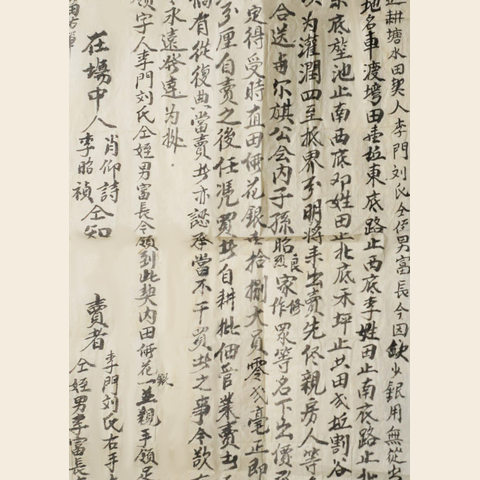 耕塘水田契人李門刘氏仝侄男富長今因缺少銀用無從出
地名車渡塆田壹坵東底路止西底李姓田止南底路止北
底塱池止南西底邓姓田止北底禾坪止共田弍坵割谷
以为灌潤四至抵界分明將來出賣先尽親房人等
合送与尔旗公会内子孫昭烈良家作修眾等名下出價承
定得受時直田價花銀壹拾捌大員零弍毫正即
分厘自賣之後任凭買出自耕批佃管業賣出
倘有從復典當賣出亦認承當不干買出之事今欲
永遠發達为批
領字人李門刘氏仝姪男富長今領到此契内田價花銀一並親手領足
在場中人 肖仰詩 李昭禎 仝知
賣者 李門刘氏右手 仝姪男李富長